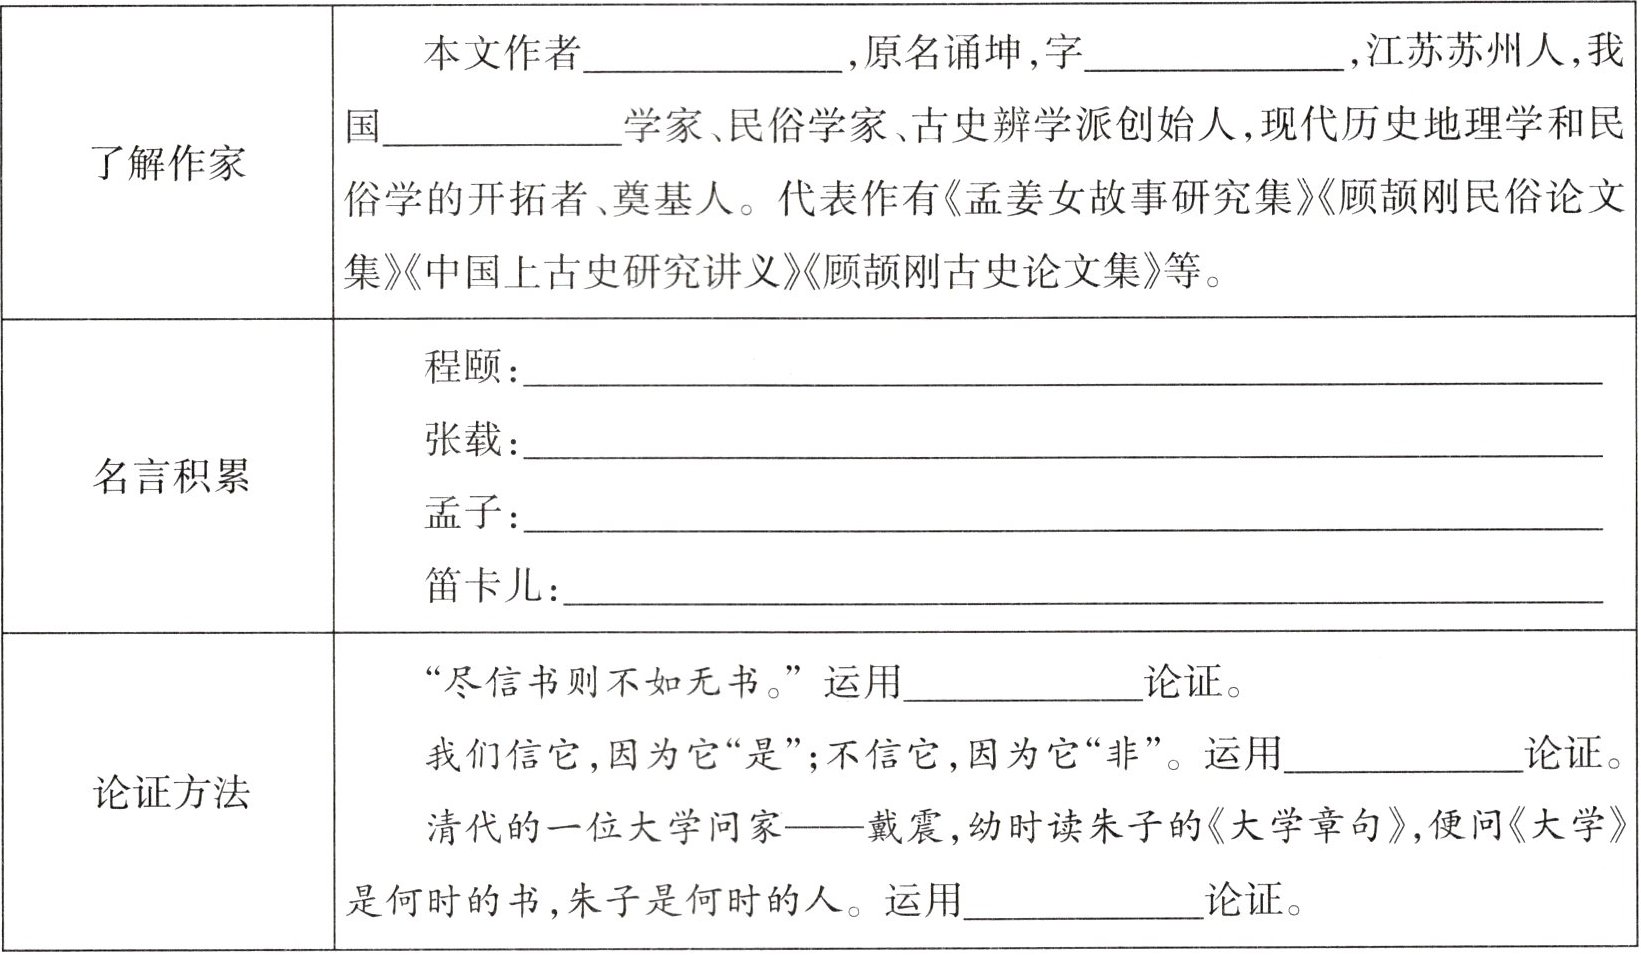 了解作家
本文作者____________,原名诵坤,字____________,江苏苏州人,我
国____________学家、民俗学家、古史辨学派创始人,现代历史地理学和民
俗学的开拓者、奠基人。代表作有《孟姜女故事研究集》《顾颉刚民俗论文
集》《中国上古史研究讲义》《顾颉刚古史论文集》等。
名言积累
程颐:____________
张载:____________
孟子:____________
笛卡儿:____________
论证方法
“尽信书则不如无书。”运用____________论证。
我们信它,因为它“是”;不信它,因为它“非”。运用____________论证。
清代的一位大学问家——戴震,幼时读朱子的《大学章句》,便问《大学》
是何时的书,朱子是何时的人。运用____________论证。